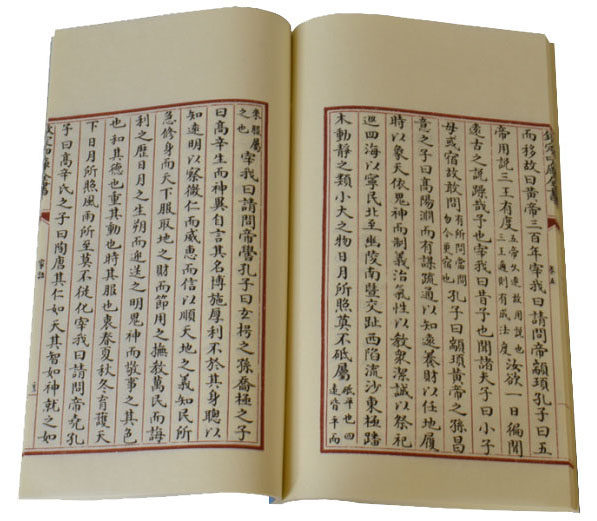 欽定四庫全書
卷五
而移故曰黄帝三百年宰我曰請問帝顓頊孔子曰五
帝用說三王有度五帝久遠故用說也三王邇則有成法度汝欲一日徧聞
遠古之說躁哉予也宰我曰昔予也聞諸夫子曰小子
毋或宿故敢問有所問當問勿令更宿也孔子曰顓頊黄帝之孫昌
意之子曰髙陽淵而有謀疏通以知遠養財以任地履
時以象天依鬼神而制義治氣性以教衆潔誠以祭祀
巡四海以寧民北至幽陵南暨交趾西陷流沙東極蟠
木動静之類小大之物日月所照莫不砥屬砥平也四遠皆平而
來服屬之也宰我曰請問帝嚳孔子曰玄枵之孫喬極之子
曰髙辛生而神異自言其名博施厚利不於其身聰以
知遠明以察微仁而威惠而信以順天地之義知民所
急修身而天下服取地之財而節用之撫教萬民而誨
利之歴日月之生朔而迎送之明鬼神而敬事之其色
也和其德也重其動也時其服也衷春夏秋冬育護天
下日月所照風雨所至莫不從化宰我曰請問帝堯孔
子曰髙辛氏之子曰陶唐其仁如天其智如神就之如
欽定四庫全書
家語